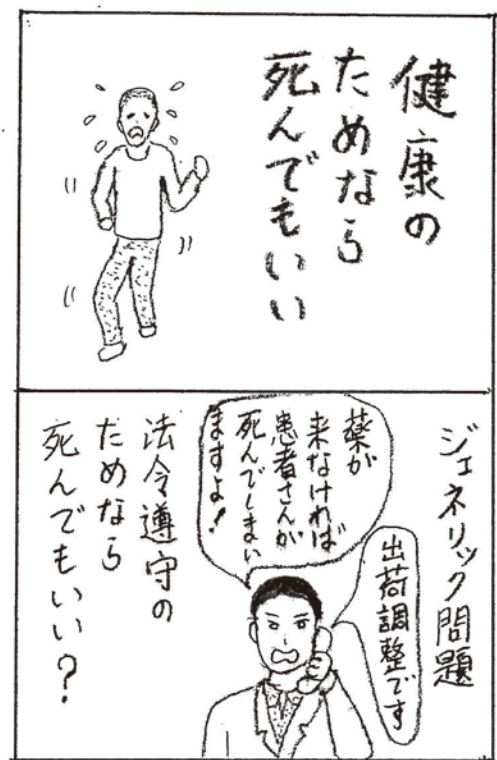 健康の
ためなら
死んでもいい
ジェネリック問題
出荷調整です
薬が
来なければ
患者さんが
死んでしまい
ますよ！
法令遵守の
ためなら
死んでもいい？